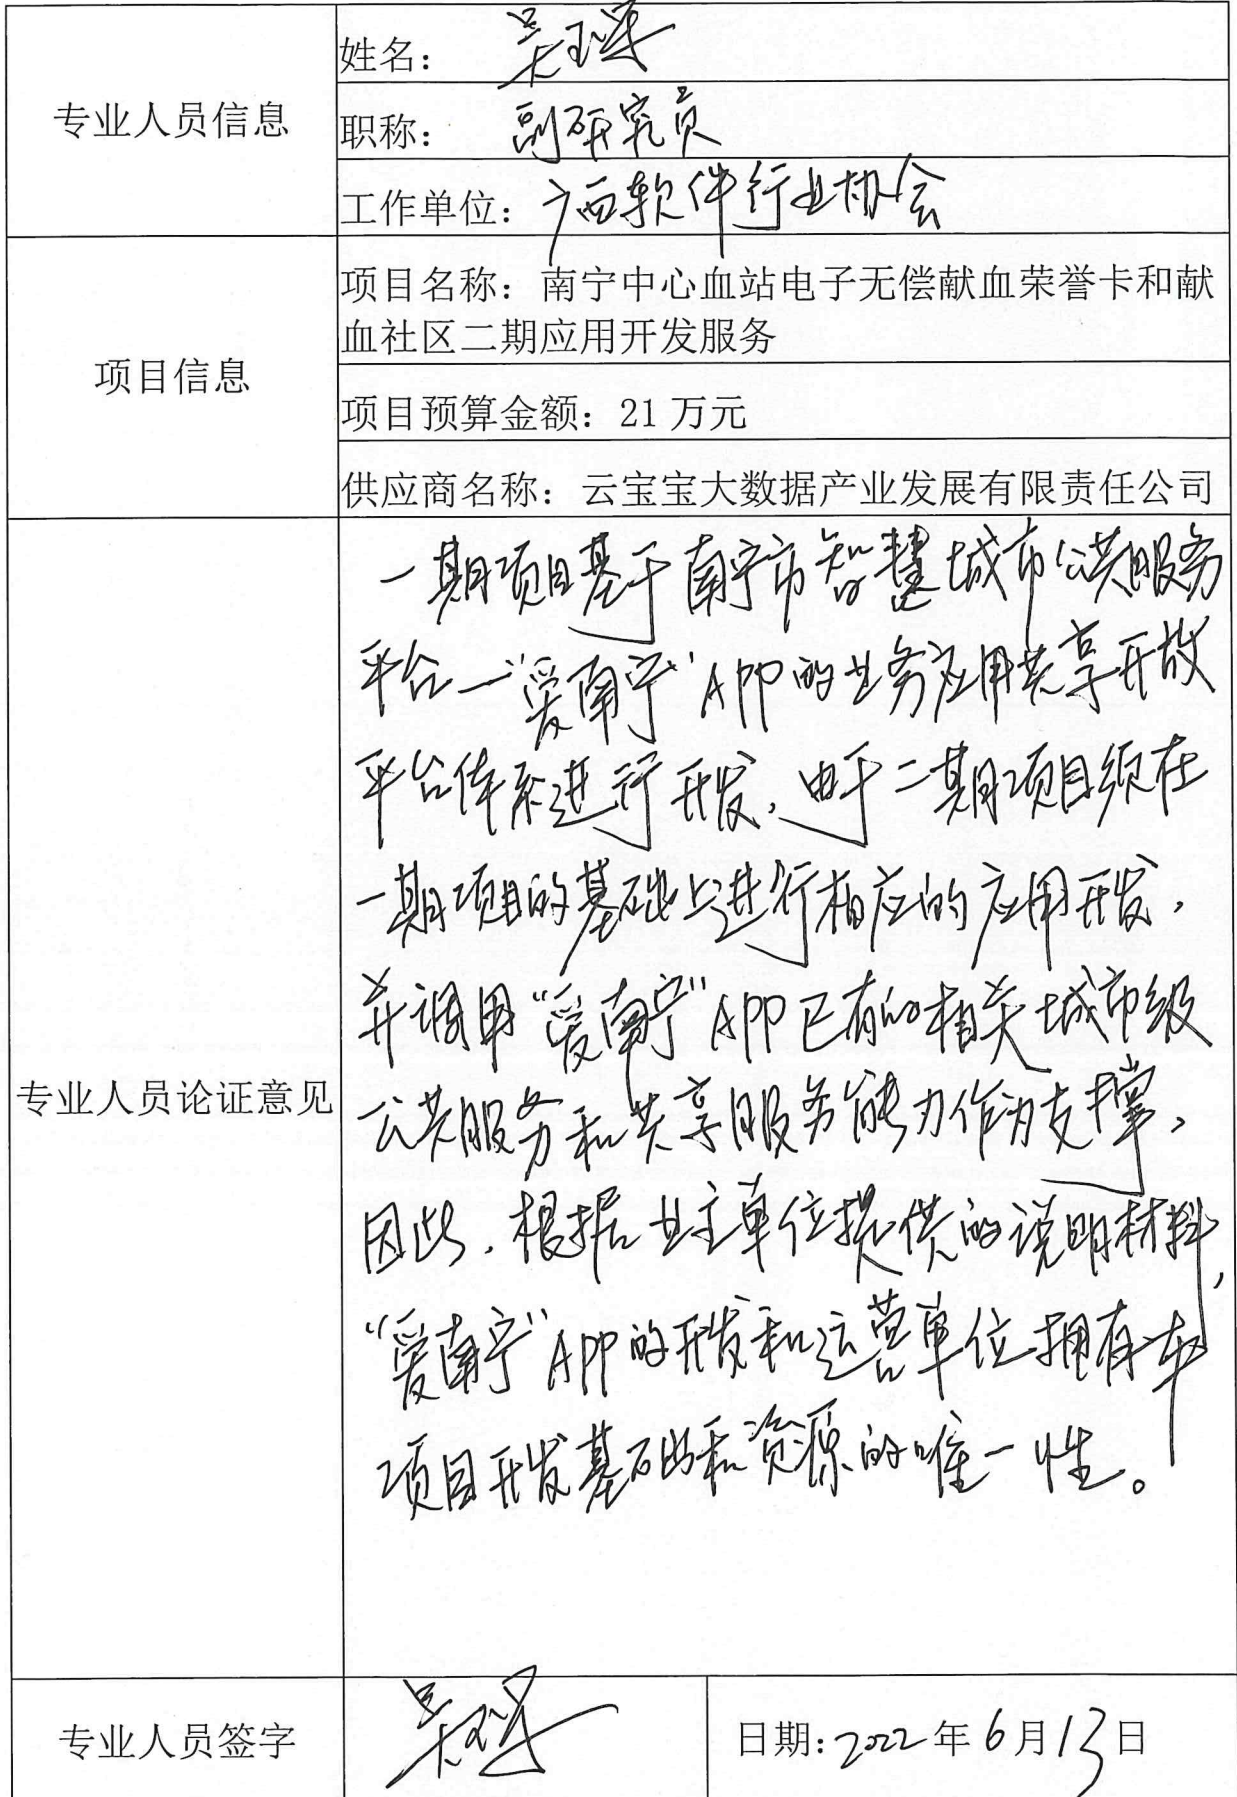 专业人员信息
姓名：吴
职称：副研究员
工作单位：广西软件行业协会
项目信息
项目名称：南宁中心血站电子无偿献血荣誉卡和献
血社区二期应用开发服务
项目预算金额：21 万元
供应商名称：云宝宝大数据产业发展有限责任公司
专业人员论证意见
一期项目基于南宁市智慧城市公共服务
平台—“爱南宁”APP的业务应用共享开放
平台体系进行开发，由于二期项目须在
一期项目的基础上进行相应的应用开发，
并调用“爱南宁”APP已有的相关城市级
公共服务和共享服务能力作为支撑，
因此，根据业主单位提供的说明材料，
“爱南宁”APP的开发和运营单位拥有本
项目开发基础和资源的唯一性。
专业人员签字
吴
日期：2022年6月13日